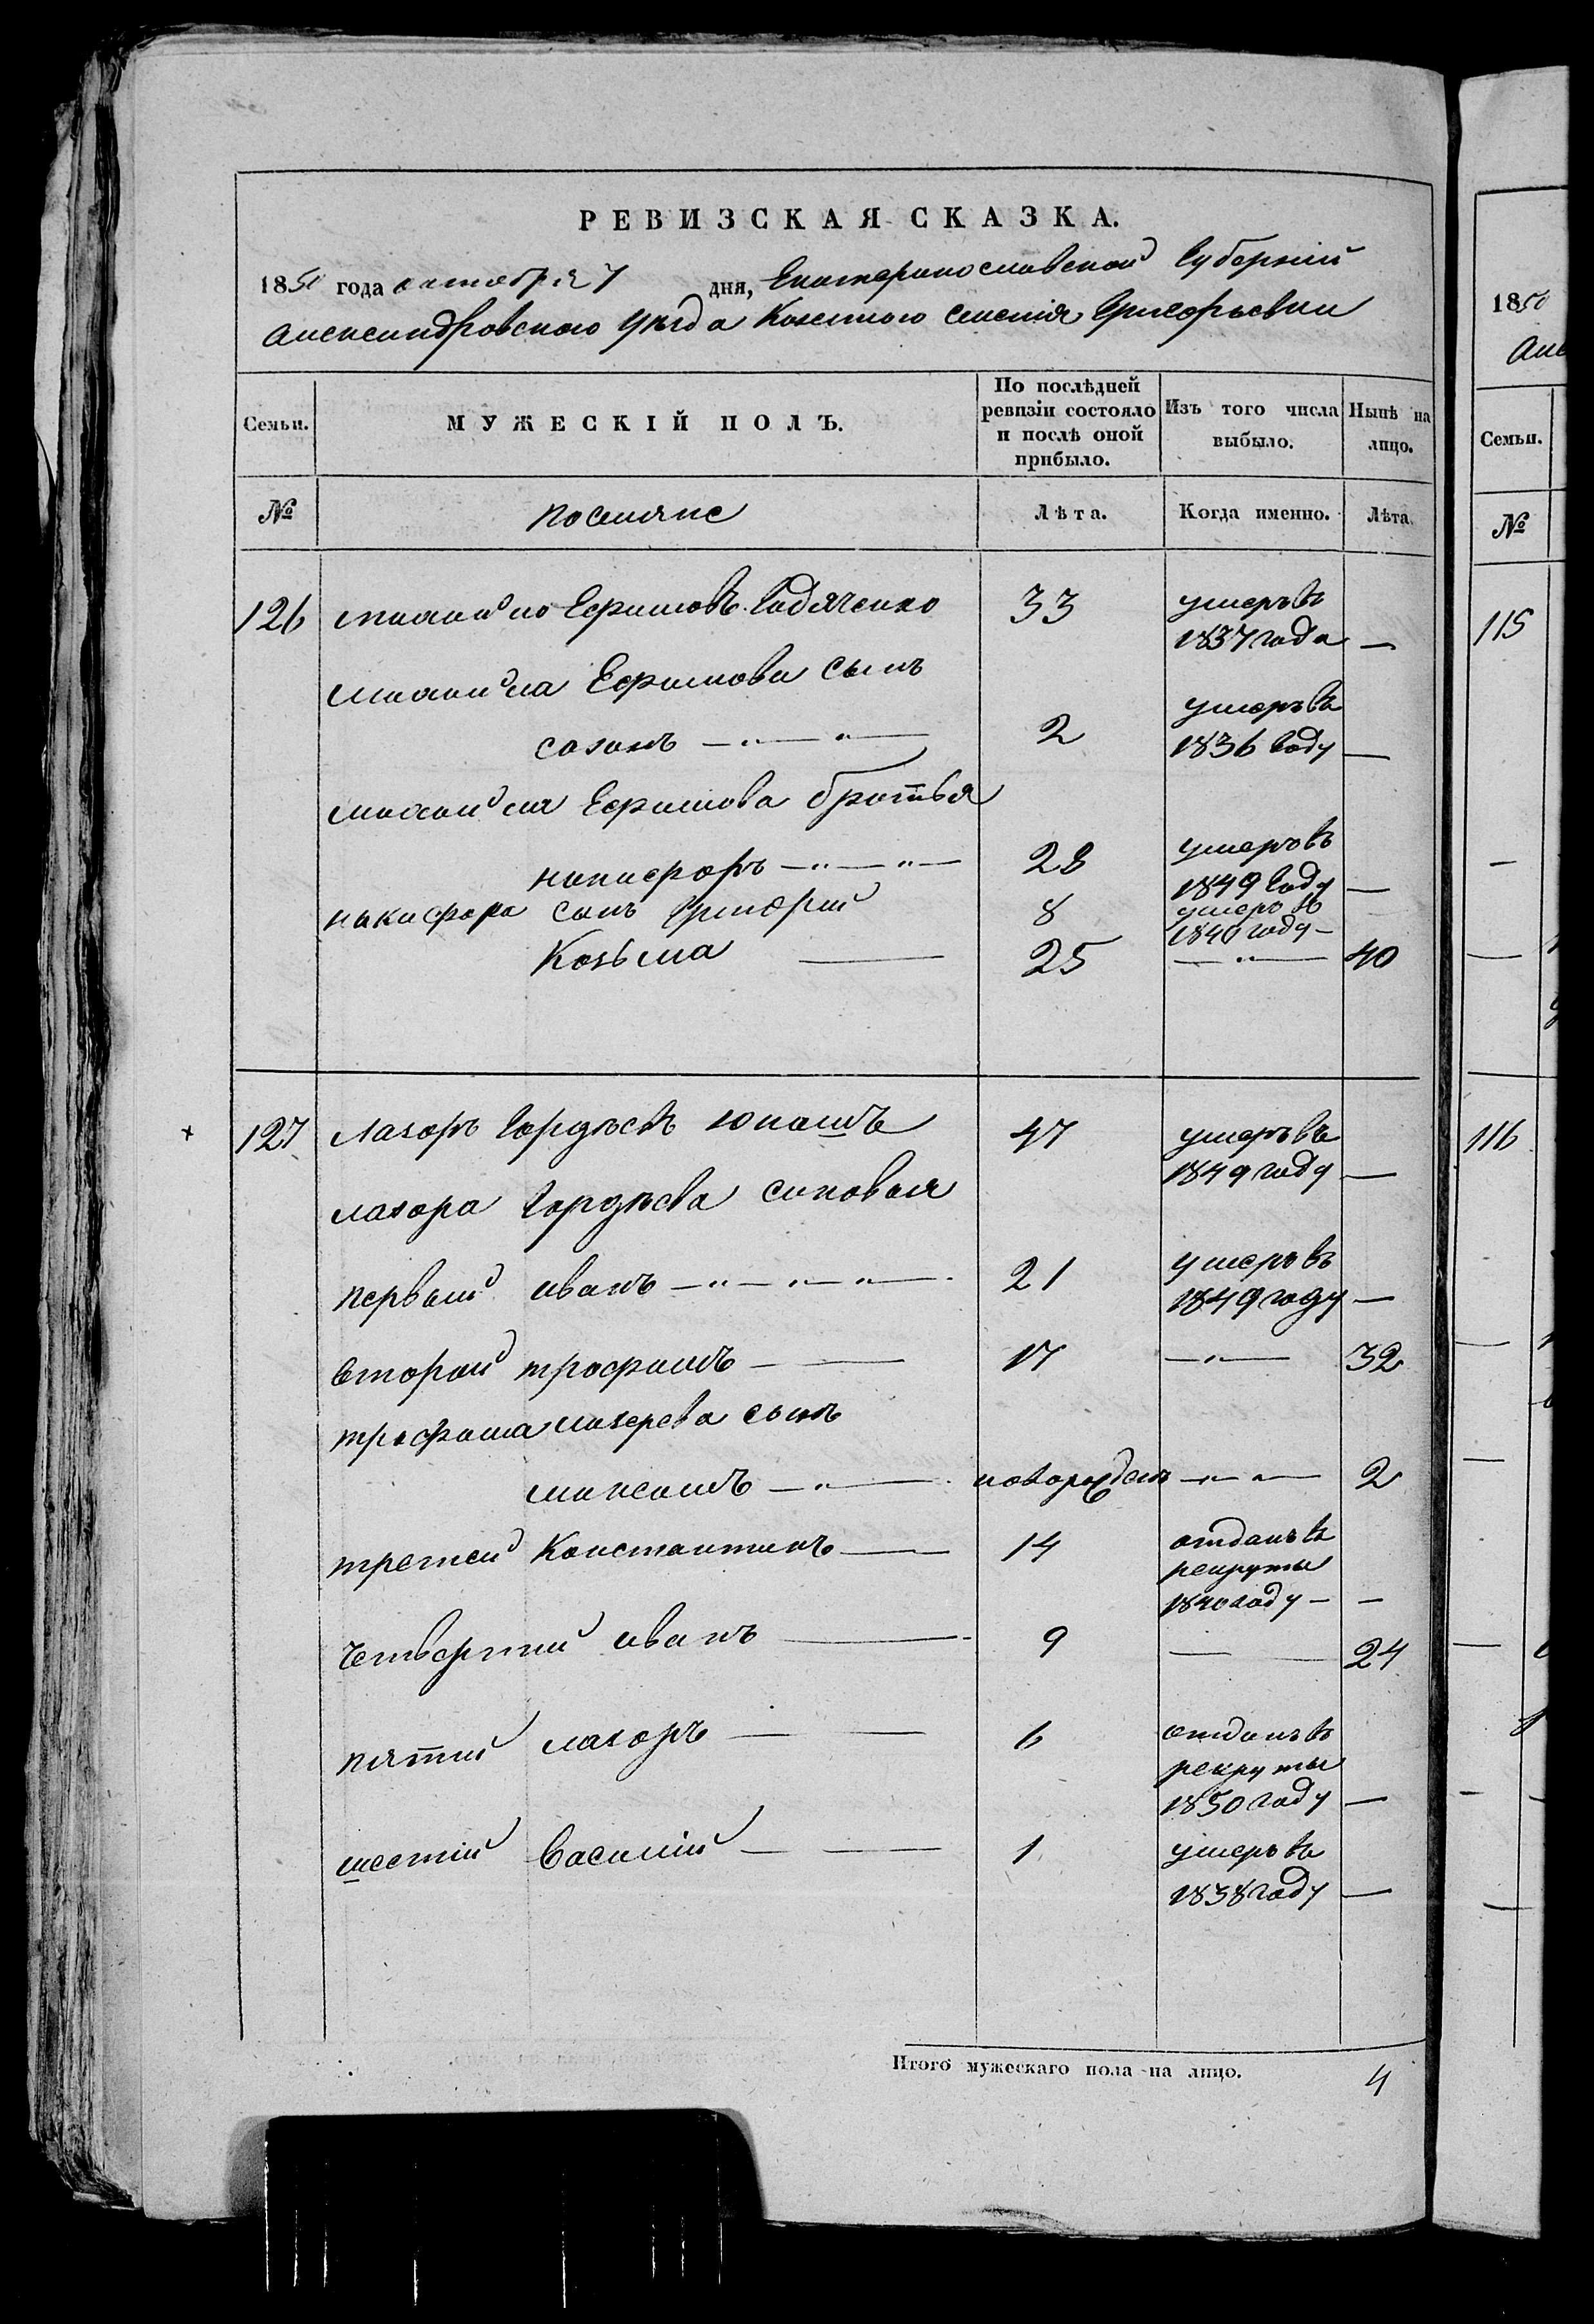 РЕВИЗСКАЯ СКАЗКА.
1850 года октября 7 дня, Екатеринославской Губернiи
Александровского уезда Казенного селенiя Григорьевки
Семьи. МУЖЕСКIЙ ПОЛЪ. По послѣдней ревизiи состояло и послѣ оной прибыло. Изъ того числа выбыло. Нынѣ на лицо.
№ поселяне Лѣта. Когда именно. Лѣта.
126 михайло Ефимовъ Гадяченко 33 умеръ въ
1837 года —
михайла Ефимова сынъ
сазонъ 2 умеръ въ
1836 году —
михайла Ефимова братья
никифоръ 28 умеръ въ
1849 году —
никифора сынъ Григорий 8 умеръ въ
1840 году —
Козьма 25 — 40
127 лазоръ Гордѣевъ юнашъ 47 умеръ въ
1849 году —
лазора Гордѣева синовья
первый иванъ 21 умеръ въ
1849 году —
вторый трофимъ 17 — 32
трофима лазерева сынъ
максимъ новорожденъ — 2
третей Константинъ 14 отданъ въ
рекруты
1840 году —
четвертий иванъ 9 — 24
пятий лазоръ 6 отданъ въ
рекруты
1850 году —
шестiй Василiй 1 умеръ въ
1838 году —
Итого мужескаго пола на лицо. 4
1850
Семьи.
№
115
116